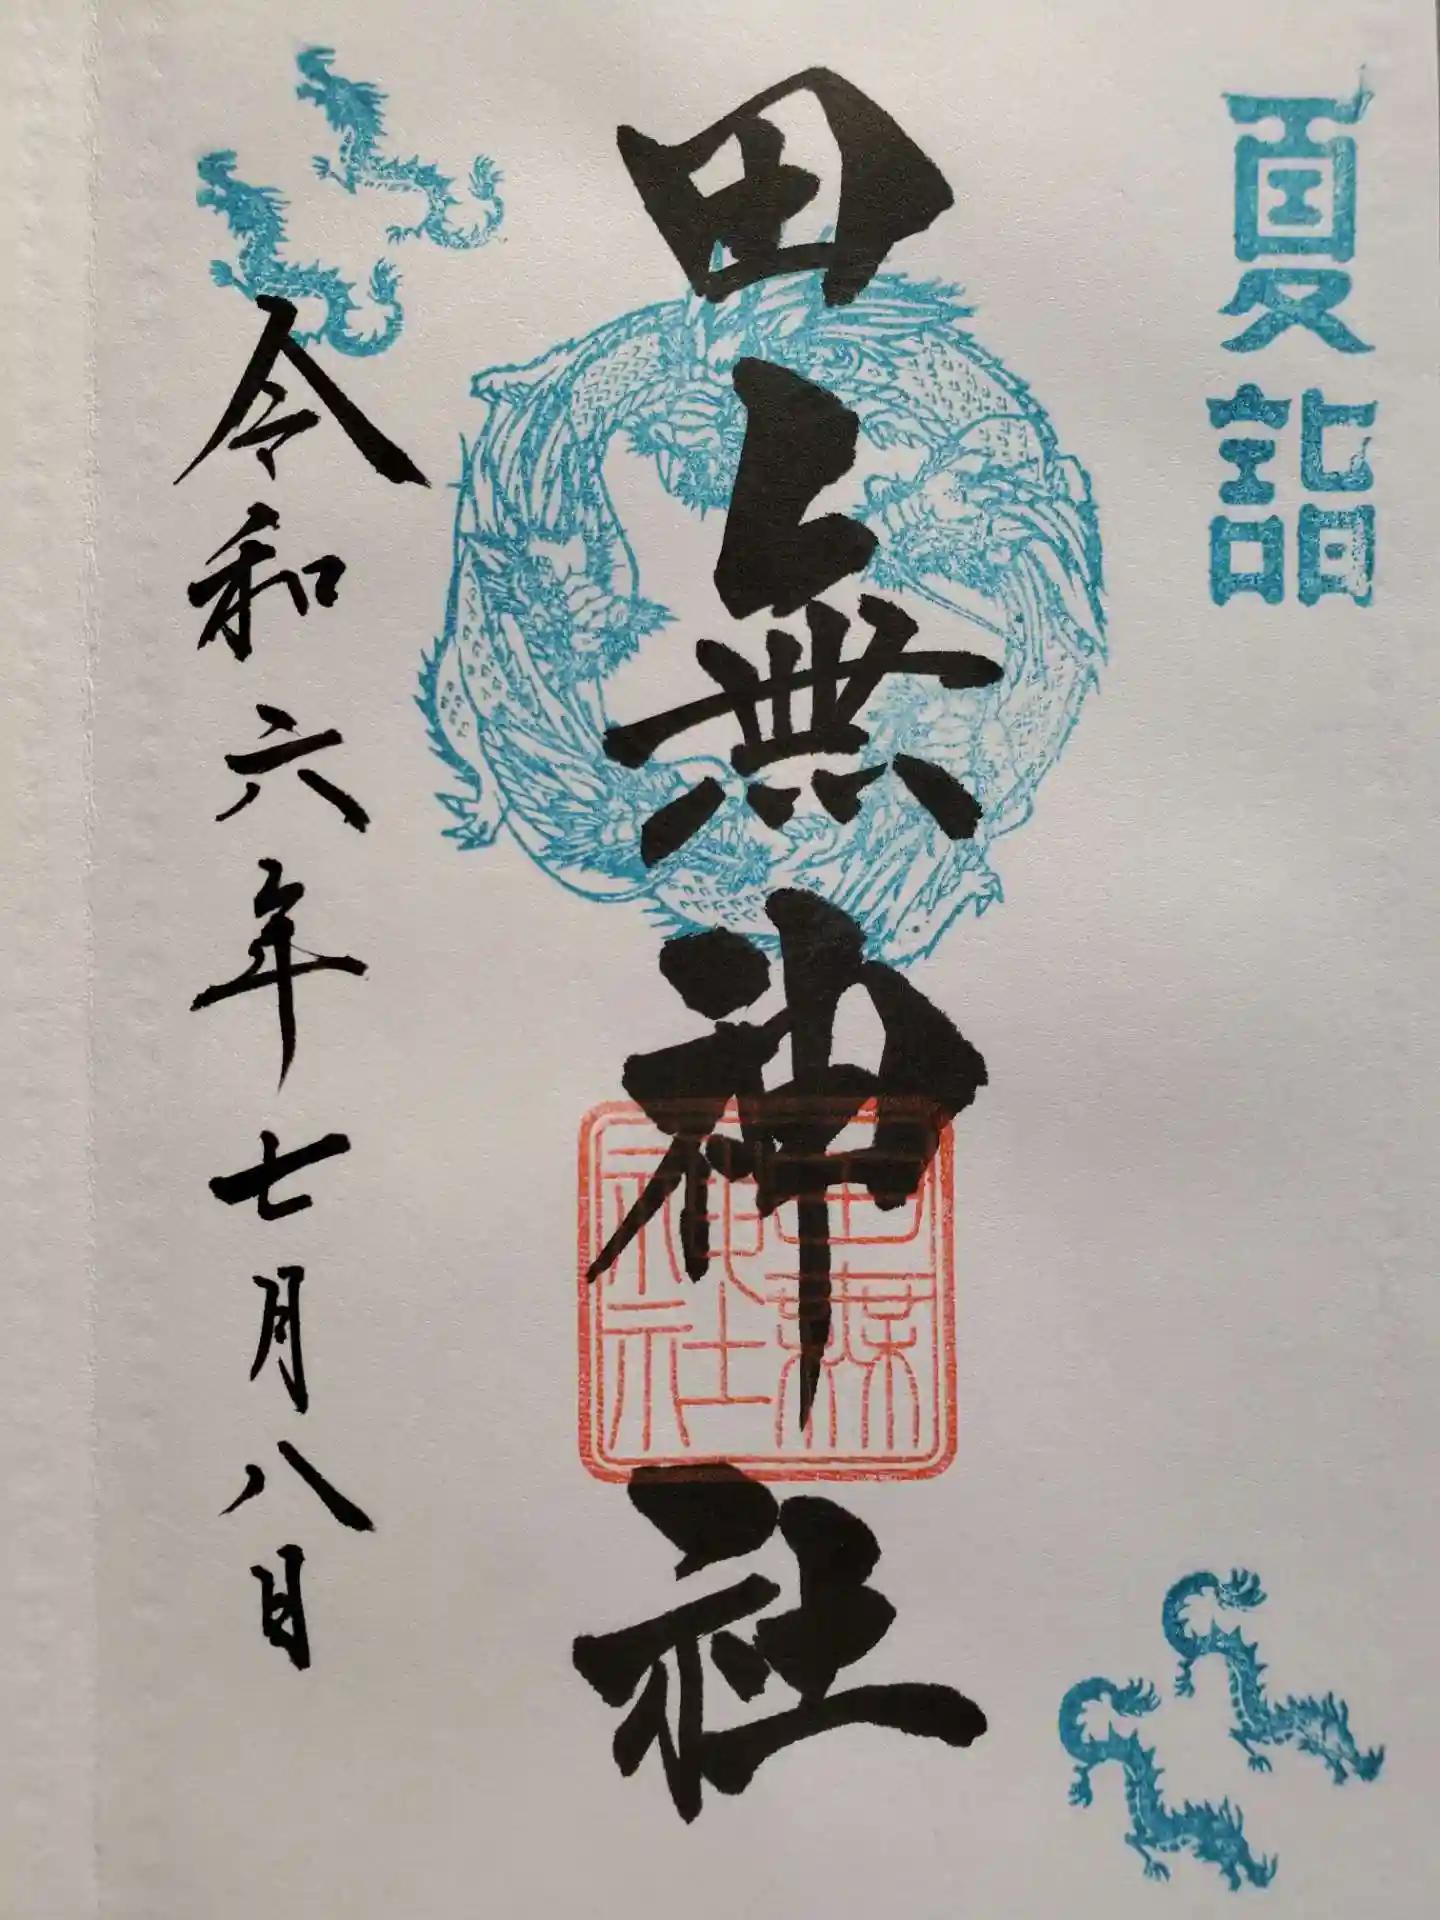 夏詣
田無神社
田無神社
令和六年七月八日